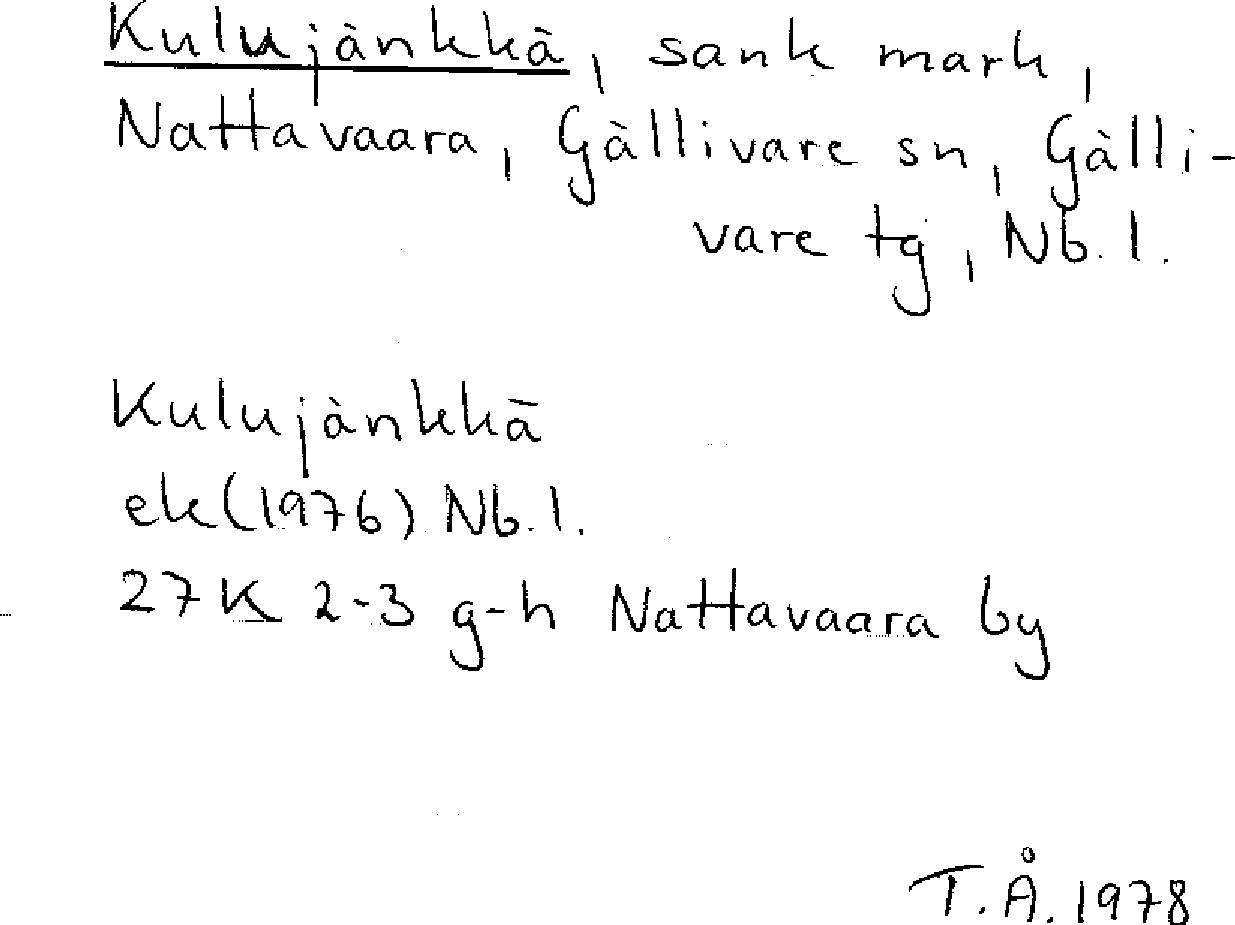 Kulujänkkä, sank mark,
Nattavaara, Gällivare sn, Gälli-
vare tg, Nb. l.
Kulujänkkä
ek(1976) Nb. l.
27K 2-3 g-h Nattavaara by
T.Å. 1978